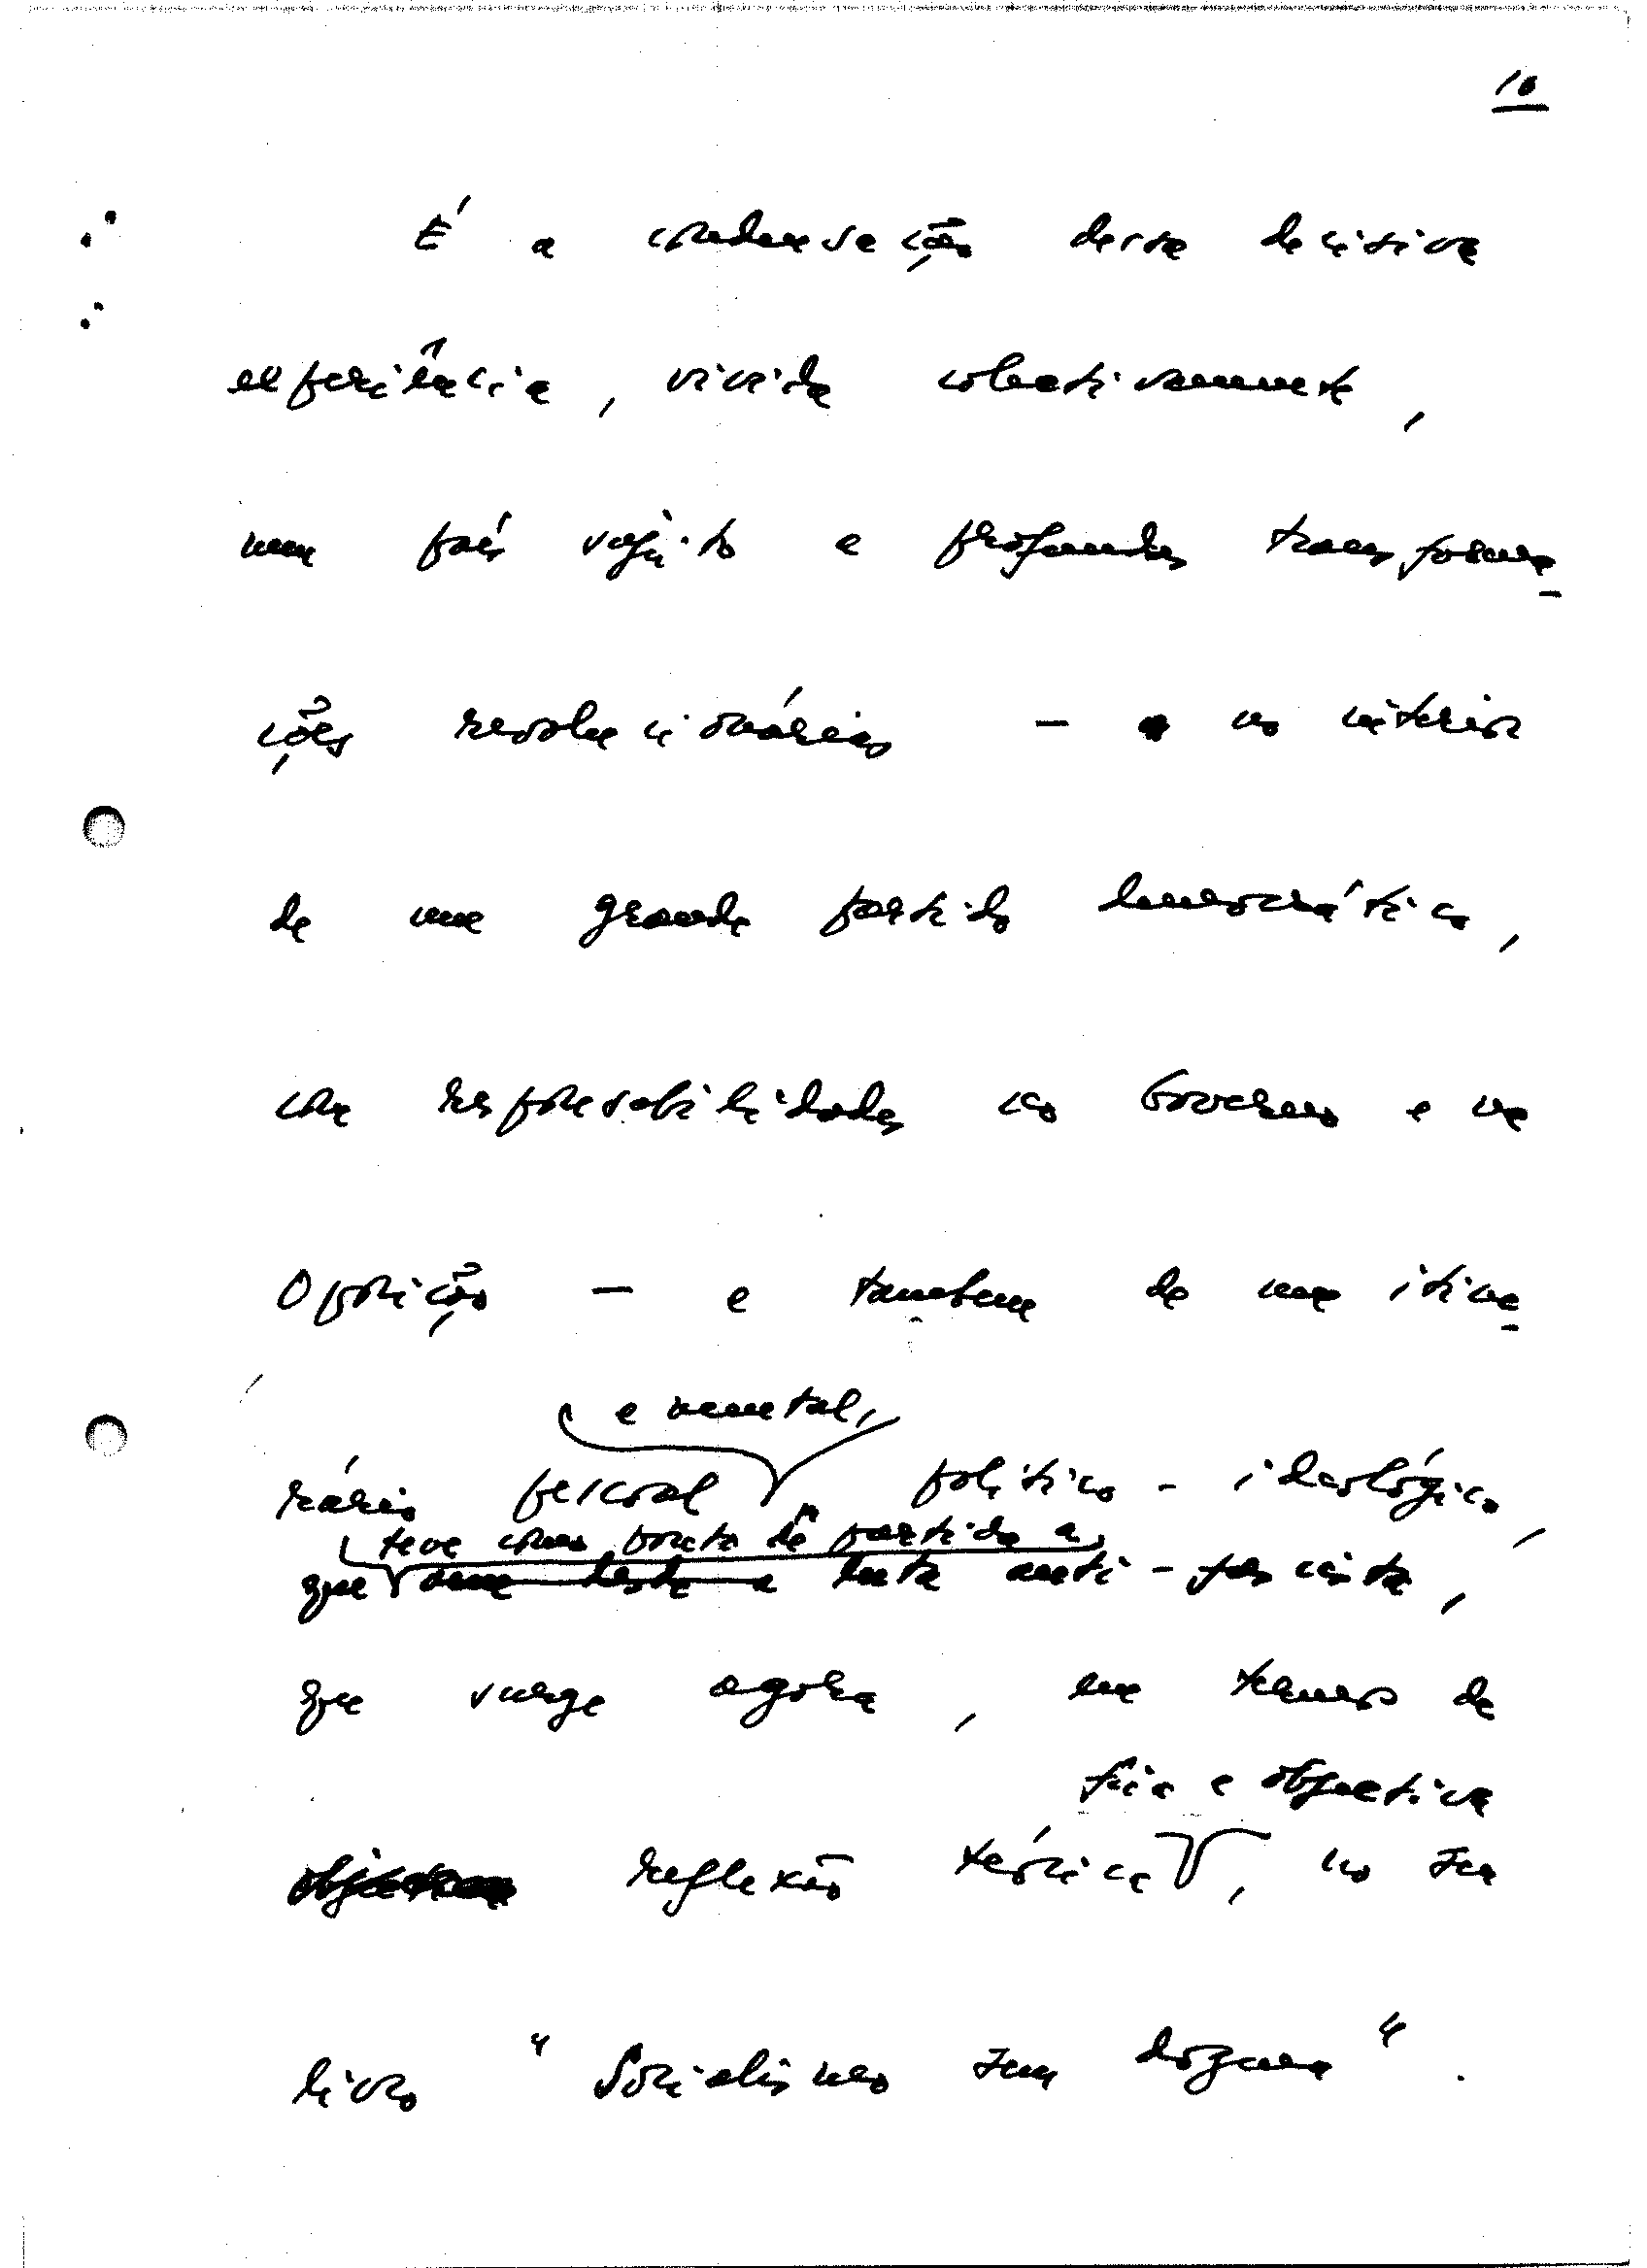 10
É a condensação desta decisiva
experiência, vivida colectivamente,
num país sujeito a profundas transforma-
ções revolucionárias - no interior
de um grande partido democrático,
com responsabilidades no Governo e na
Oposição - e tambem de um itine-
e mental,
rário pessoal político-ideológico,
teve como ponto de partida a
que vem desde a luta anti-fascista,
que surge agora, em termos de
fria e objectiva
objectiva reflexão teórica, no seu
livro "Socialismo sem dogma".